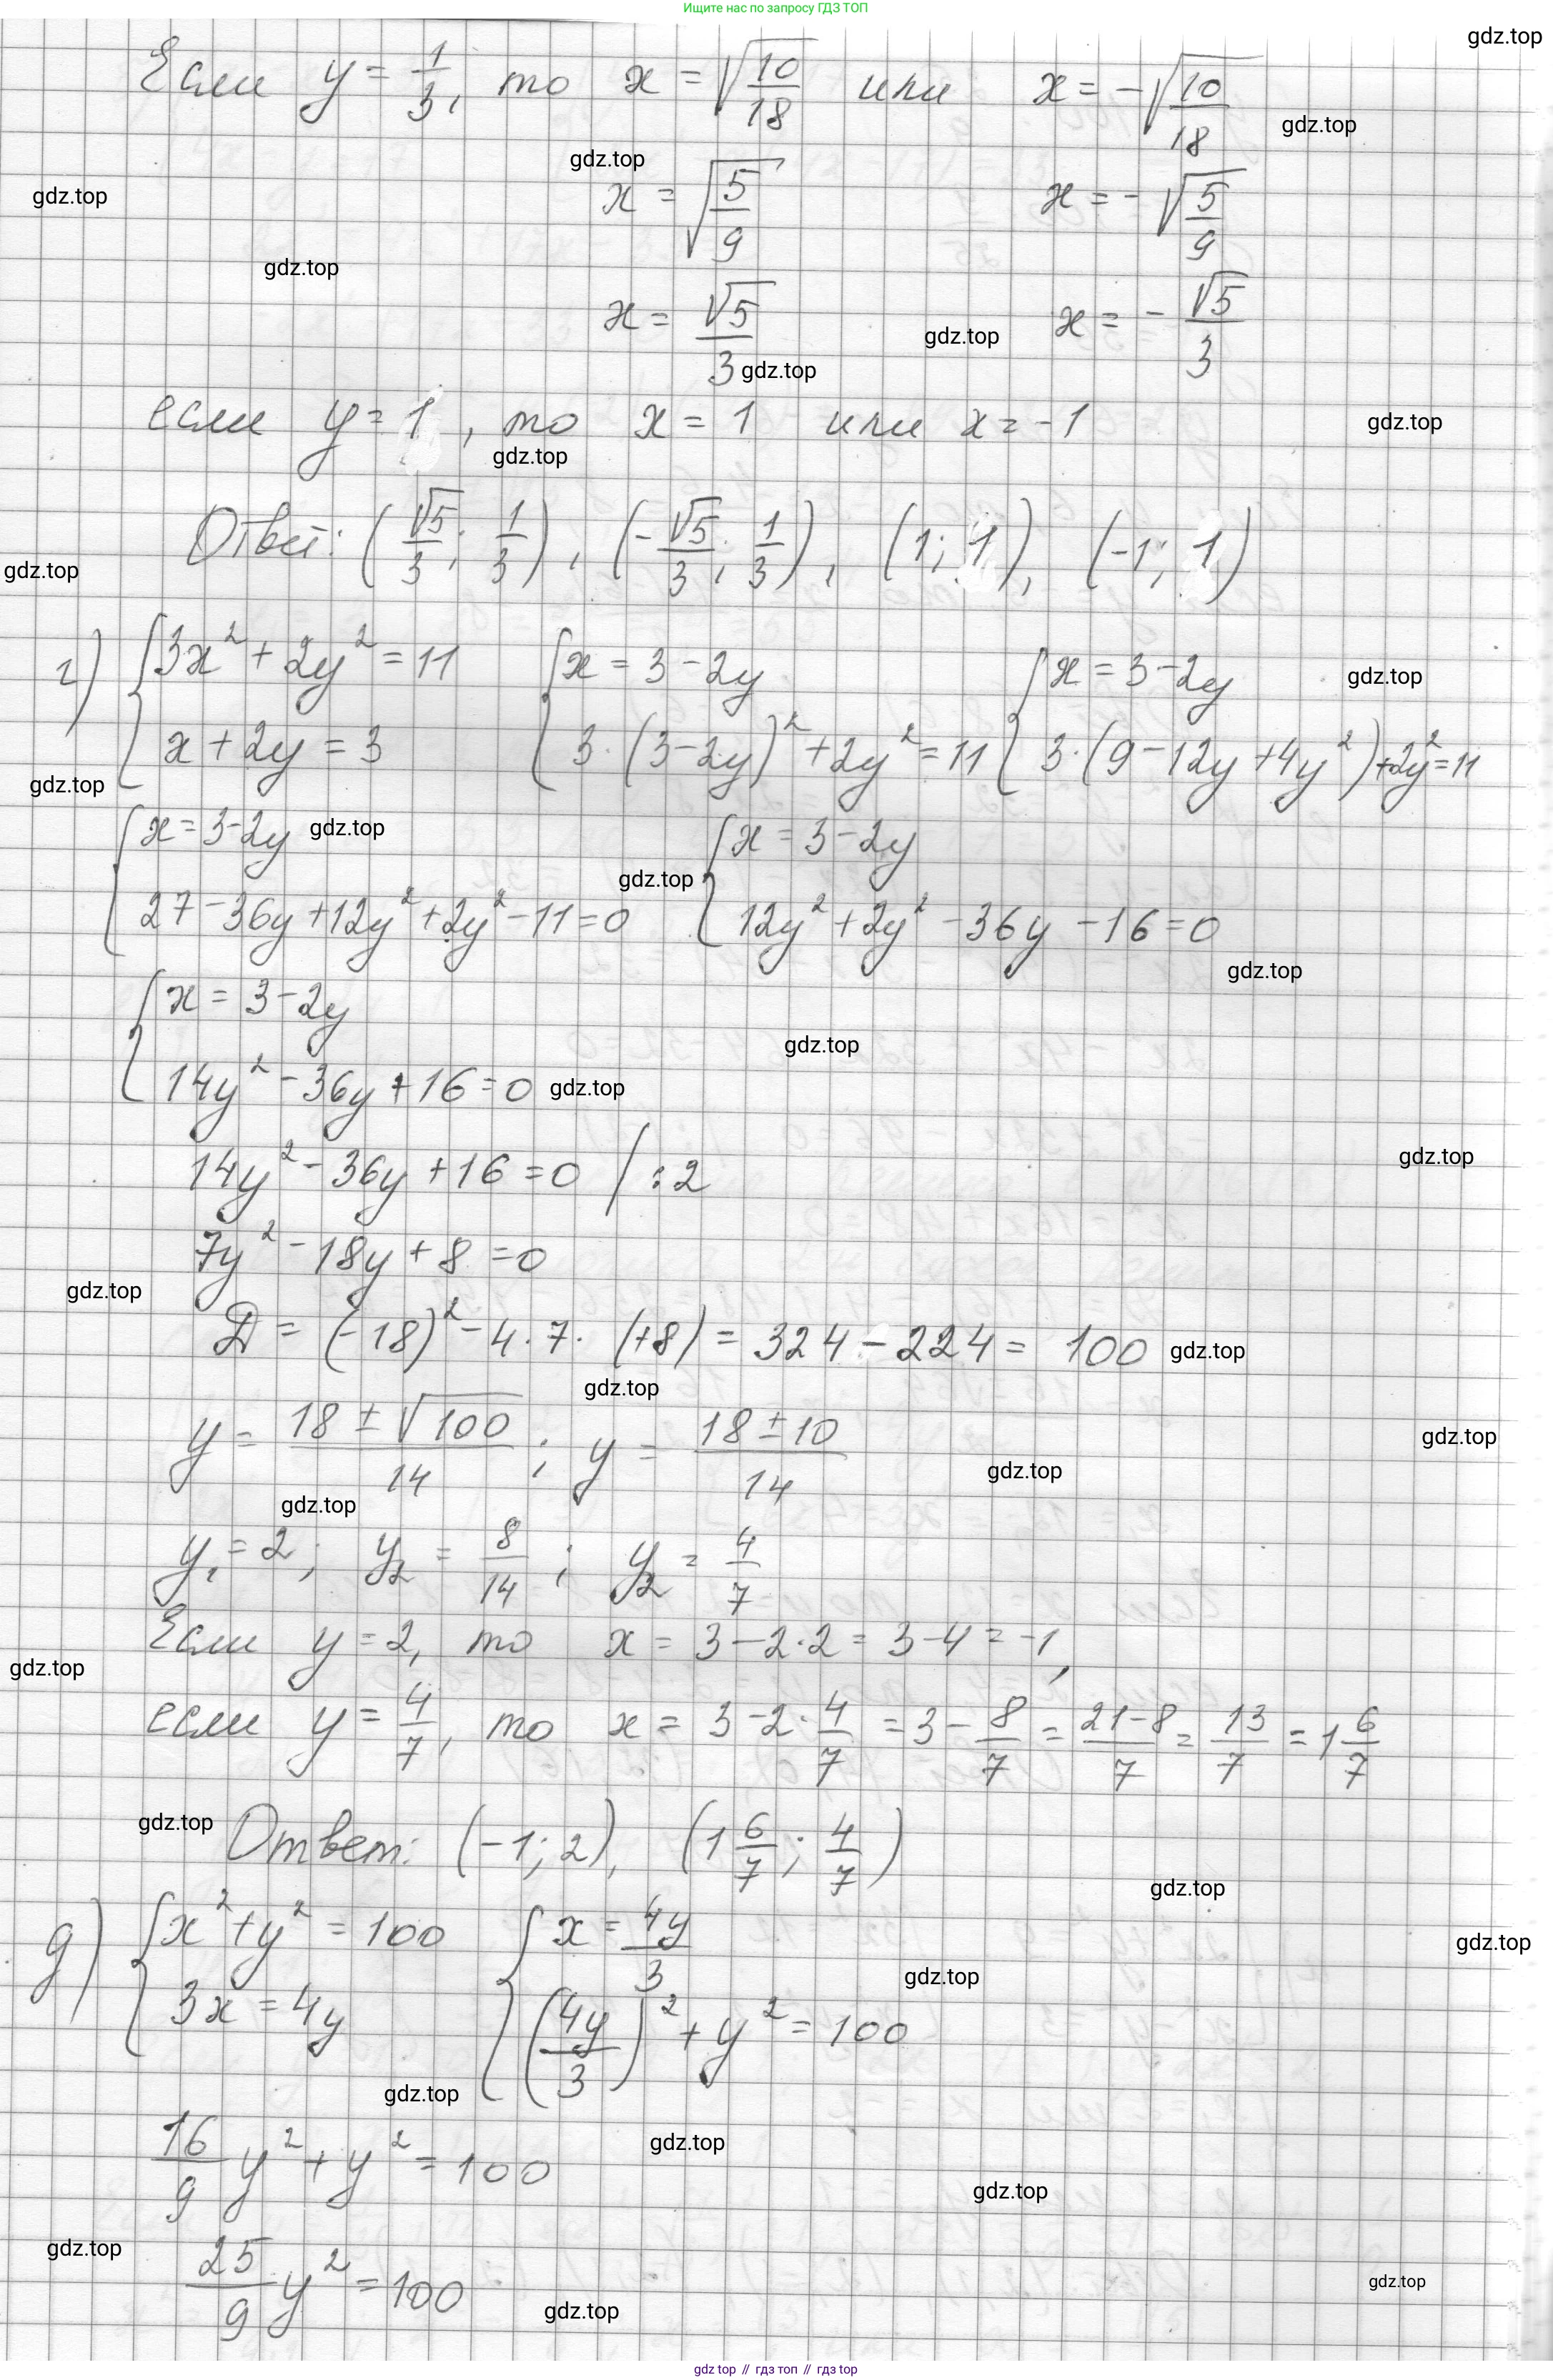 Ищите нас по запросу ГДЗ ТОП
gdz.top
Если y = 1/3, то x = √(10/18) или x = -√(10/18)
gdz.top
gdz.top
gdz.top
x = √(5/9) x = -√(5/9)
gdz.top
x = √5/3 x = -√5/3
gdz.top
gdz.top
если y = 1, то x = 1 или x = -1
gdz.top
gdz.top
Ответ: (√5/3; 1/3), (-√5/3; 1/3), (1; 1), (-1; 1)
gdz.top
г) {3x² + 2y² = 11 {x = 3 - 2y {x = 3 - 2y
gdz.top
x + 2y = 3 3·(3-2y)² + 2y² = 11 3·(9 - 12y + 4y²) + 2y² = 11
gdz.top
{x = 3-2y gdz.top {x = 3 - 2y
gdz.top
27 - 36y + 12y² + 2y² - 11 = 0 12y² + 2y² - 36y - 16 = 0
gdz.top
{x = 3 - 2y
gdz.top
14y² - 36y + 16 = 0 gdz.top
14y² - 36y + 16 = 0 / :2
gdz.top
7y² - 18y + 8 = 0
gdz.top
Д = (-18)² - 4·7·(+8) = 324 - 224 = 100 gdz.top
gdz.top
y = (18 ± √100)/14 ; y = (18 ± 10)/14
gdz.top
gdz.top
gdz.top
y₁ = 2 ; y₂ = 8/14 ; y₂ = 4/7
Если y = 2, то x = 3 - 2·2 = 3 - 4 = -1,
gdz.top
если y = 4/7, то x = 3 - 2·4/7 = 3 - 8/7 = (21-8)/7 = 13/7 = 1 6/7
gdz.top
Ответ: (-1; 2), (1 6/7; 4/7)
gdz.top
д) {x² + y² = 100 {x = 4y/3
gdz.top
gdz.top
3x = 4y (4y/3)² + y² = 100
gdz.top
gdz.top
16/9 y² + y² = 100
gdz.top
gdz.top
25/9 y² = 100
gdz.top
gdz.top
gdz.top // гдз топ // гдз top